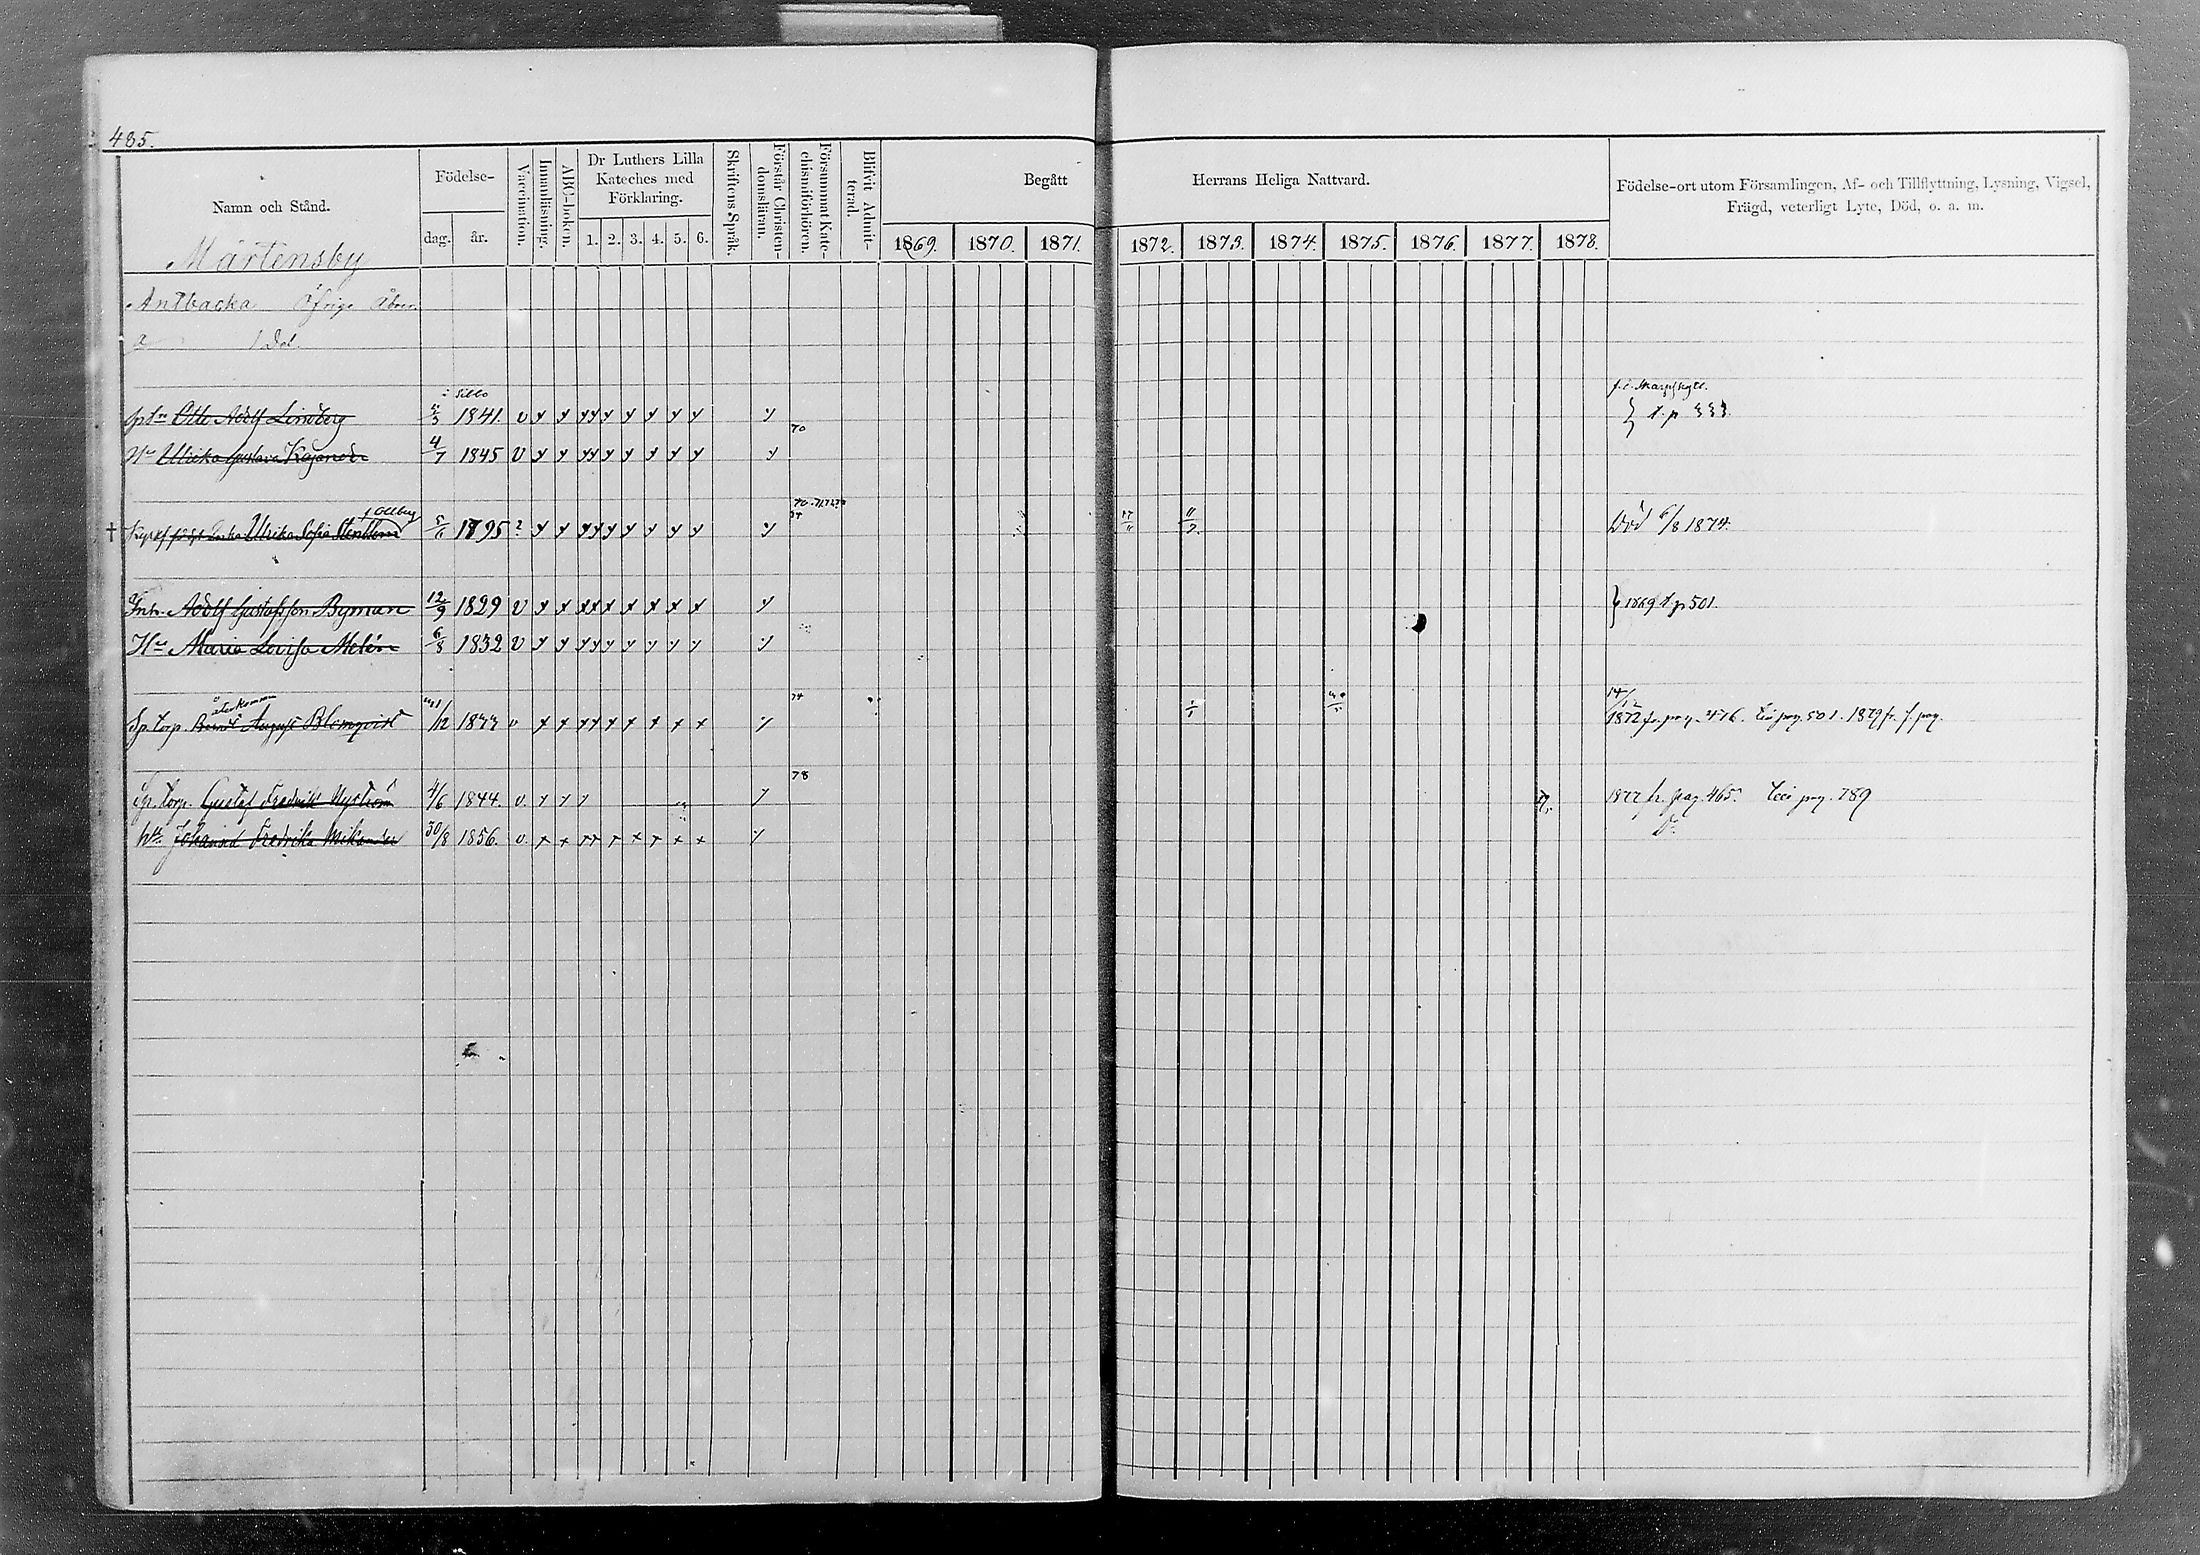 485.
Namn och Stånd.
Födelse-
dag.
år.
Vaccination.
Innanläsning.
ABC-boken.
Dr Luthers Lilla
Kateches med
Förklaring.
1. 2. 3. 4. 5. 6.
Skriftens Språk.
Förstår Christen-
domsläran.
Försummat Kate-
chismiförhören.
Blifvit Admit-
terad.
Begått
Herrans Heliga Nattvard.
1869. 1870. 1871. 1872. 1873. 1874. 1875. 1876. 1877. 1878.
Födelse-ort utom Församlingen, Af- och Tillflyttning, Lysning, Vigsel,
Frägd, veterligt Lyte, Död, o. a. m.
Mårtensby
Antbacka öfrige
Otto Adolf Lindberg 1841. v y y y y y y y y y
70
Hu Ulrika Gustava Kajander 4/7 1845 v y y y y y y y y y
† Enka Ulrika Sofia 1795 ? y y y y y y y y y Död 6/8 1874.
Inh. Adolf Gustafsson Byman 12/9 1829 v x x x x x x x x y 1869 t. p 501.
Hu Maria Lovisa Melén 6/8 1832 v y y y y y y y y y
återkommen
74
14/12
Sp. torp. August Blomqvist /12 1833 v x x x x x x x x 1872 fr. pag. 476. Till pag. 501. 1879 fr. f. pag.
78
Sp. torp. Gustaf Fredrik Nyström 4/6 1844. v. y y y 1877 fr. pag. 465. Till pag. 789
Hu. Johanna Fredrika Mikander 30/8 1856. v. x x x x x x x x Do